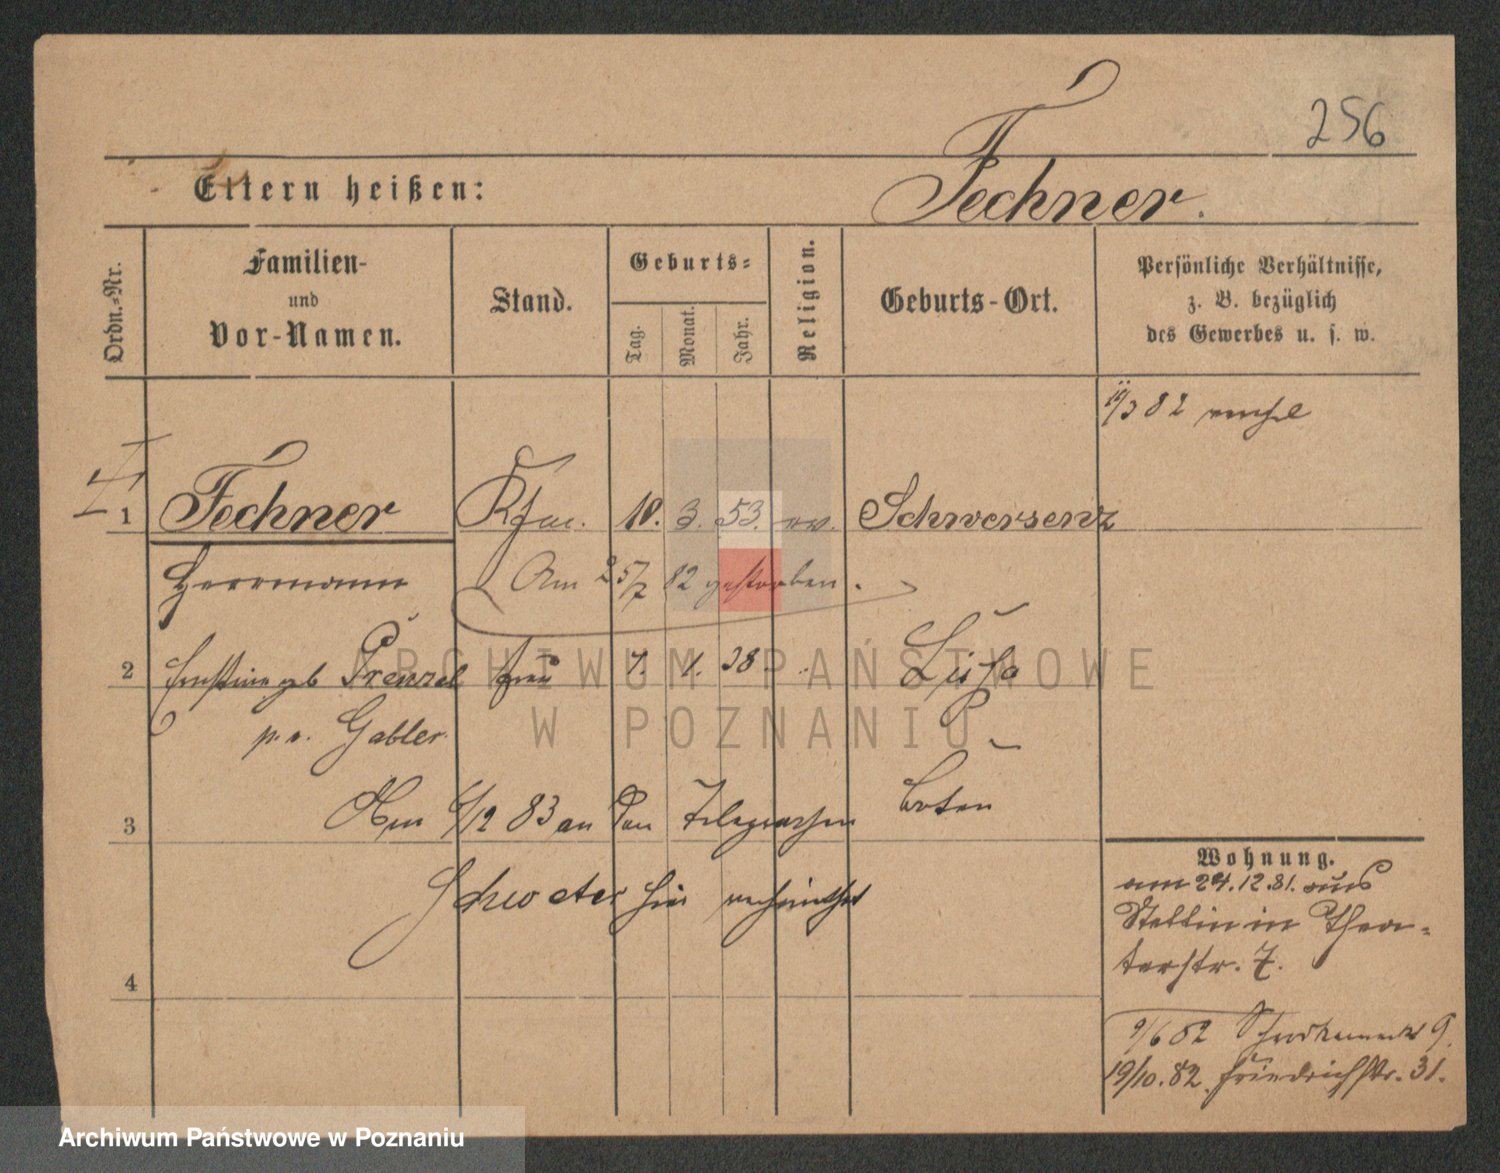 256
Eltern heißen: Fechner.
Ordn.-Nr.
Familien-
und
Vor-Namen.
Stand.
Geburts-
Tag.
Monat.
Jahr.
Religion.
Geburts-Ort.
Persönliche Verhältnisse,
z. B. bezüglich
des Gewerbes u. s. w.
/3 82
1 Fechner Kfm. 18. 3. 53. ev. Schwersenz
Herrmann Am 25/7 82 gestorben.
2 Ernstine geb Prenzel Frau 7. 1. 38 Lissa
p. v. Gabler.
3 Am /12 83 an den Telegraphen boten
Schroeter hier verheirathet
4
Wohnung.
am 24.12.81. aus
Stettin in Thea-
terstr. 7.
9/6 82 9.
19/10. 82. Friedrichstr. 31.
ARCHIWUM PAŃSTWOWE
W POZNANIU
Archiwum Państwowe w Poznaniu